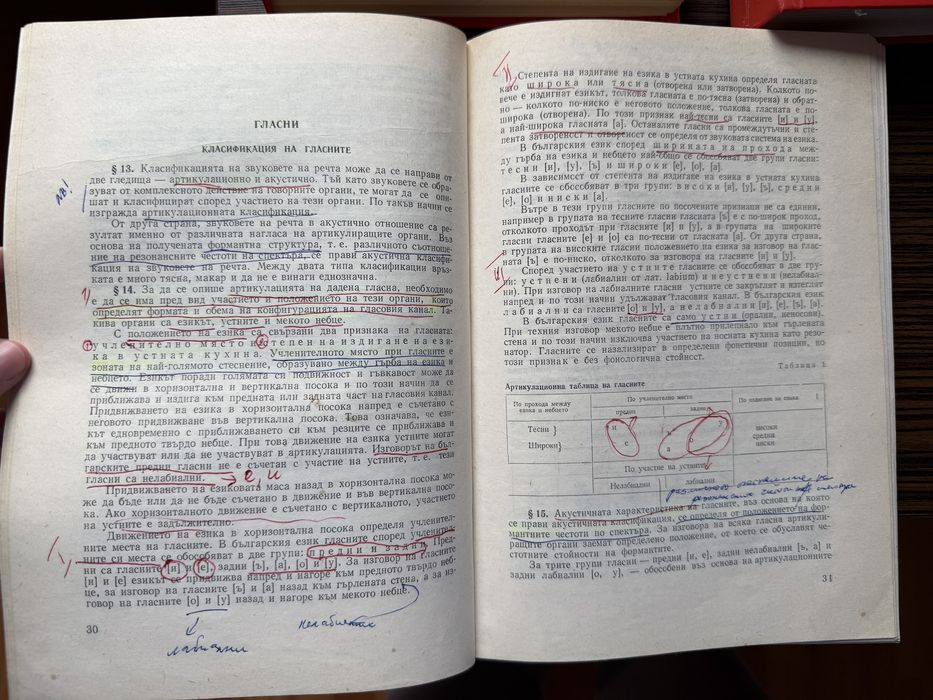 ГЛАСНИ
КЛАСИФИКАЦИЯ НА ГЛАСНИТЕ
§ 13. Класификацията на звуковете на речта може да се направи от
NB!
две гледища — артикулационно и акустично. Тъй като звуковете се обра-
зуват от комплексното действие на говорните органи, те могат да се опи-
шат и класифицират според участието на тези органи. По такъв начин се
изгражда артикулационната класификация.
От друга страна, звуковете на речта в акустично отношение са ре-
зултат именно от различната нагласа на артикулиращите органи. Въз
основа на получената формантна структура, т. е. различното съотноше-
ние на резонансните честоти на спектъра, се прави акустична класифи-
кация на звуковете на речта. Между двата типа класификации връз-
ката е много тясна, макар и да не е винаги еднозначна.
§ 14. За да се опише артикулацията на дадена гласна, необходимо
е да се има пред внд участието и положението на тези органи, които
определят формата и обема на конфигурацията на гласовия канал. Та-
кива органи са езикът, устните и мекото небце.
С положението на езика са свързани два признака на гласната:
учленително място и степен на издигане на ези-
ка в устната кухина. Учленителното място при гласните е
зоната на най-голямото стеснение, образувано между гърба на езика и
небцето. Езикът поради голямата си подвижност и гъвкавост може да
се движи в хоризонтална и вертикална посока и по този начин да се
приближава и издига към предната или задната част на гласовия канал.
Придвижването на езика в хоризонтална посока напред е съчетано с
неговото придвижване във вертикална посока. Това означава, че ези-
кът едновременно с приближаването си към резците се приближава и
към предното твърдо небце. При това движение на езика устните могат
да участвуват или да не участвуват в артикулацията. Изговорът на бъл-
гарските предни гласни не е съчетан с участие на устните, т. е. тези
гласни са нелабиални. → е, и
Придвижването на езиковата маса назад в хоризонтална посока мо-
же да бъде или да не бъде съчетано в движение и във вертикална посо-
ка. Ако хоризонталното движение е съчетано с вертикалното, участието
на устните е задължително.
Движението на езика в хоризонтална посока определя учленител-
ните места на гласните. В българския език гласните според учленител-
ните си места се обособяват в две групи: предни и задни. Пред-
ни са гласните [и] и [е], задни [ъ], [а], [о] и [у]. За изговор на гласните
[и] и [е] езикът се придвижва напред и нагоре към предното твърдо неб-
це, за изговор на гласните [ъ] и [а] назад към гърлената стена, а за из-
говор на гласните [о] и [у] назад и нагоре към мекото небце.
30
лабиални
Степента на издигане на езика в устната кухина определя гласната
като широка или тясна (отворена или затворена). Колкото по-
вече е издигнат езикът, толкова гласната е по-тясна (затворена) и обрат-
но — колкото по-ниско е неговото положение, толкова гласната е по-
широка (отворена). По този признак най-тесни са гласните [и] и [у],
а най-широка гласната [а]. Останалите гласни са промеждутъчни и сте-
пента затвореност и отворсност се определя от звуковата система на езика.
В българския език според ширината на прохода меж-
ду гърба на езика и небцето най-общо се обособяват две групи гласни:
тесни [и], [у], [ъ] и широки [е], [о], [а].
В зависимост от степента на издигане на езика в устната кухина
гласните се обособяват в три групи: високи [и], [у], [ъ], средни
[е], [о] и ниски [а].
Вътре в тези групи гласните по посочените признаци не са единни,
например в групата на тесните гласни гласната [ъ] е с по-широк проход,
отколкото проходът при гласните [и] и [у], а в групата на широките
гласни гласните [е] и [о] са по-тесни от гласната [а]. От друга страна,
в групата на високите гласни положението на езика за изговор на глас-
ната [ъ] е по-ниско, отколкото за изговор на гласните [и] и [у].
Според участието на устните гласните се обособяват в две гру-
пи: устнени (лабиални от лат. labium) и неустнени (нелабиал-
ни). При изговор на лабиалните гласни устните се закръглят и изтеглят
напред и по този начин удължават гласовия канал. В българския език
лабиални са гласните [о] и [у], а нелабиални [и], [е], [ъ], [а].
В българския език гласните са само устни (орални, неносови).
При техния изговор мекото небце е плътно прилепнало към гърлената
стена и по този начин изключва участието на носната кухина като резо-
натор. Гласните се назализират в определени фонетични позиции, но
този признак е без фонологична стойност.
Таблица 1
Артикулационна таблица на гласните
По прохода между езика и небцето
По учленително място
По издигане на езика
предни
задни
Тесни
и
ъ
у
високи
Широки
е
о
средни
а
ниски
По участие на устните
Нелабиални
лабиални
§ 15. Акустичната характеристика на гласните, въз основа на която
се прави акустичната класификация, се определя от положението на фор-
мантните честоти по спектъра. За изговора на всяка гласна артикули-
ращите органи заемат определено положение, от което се обуславят че-
стотните стойности на формантите.
За трите групи гласни — предни [и, е], задни нелабиални [ъ, а] и
задни лабиални [о, у], — обособени въз основа на артикулационните
31